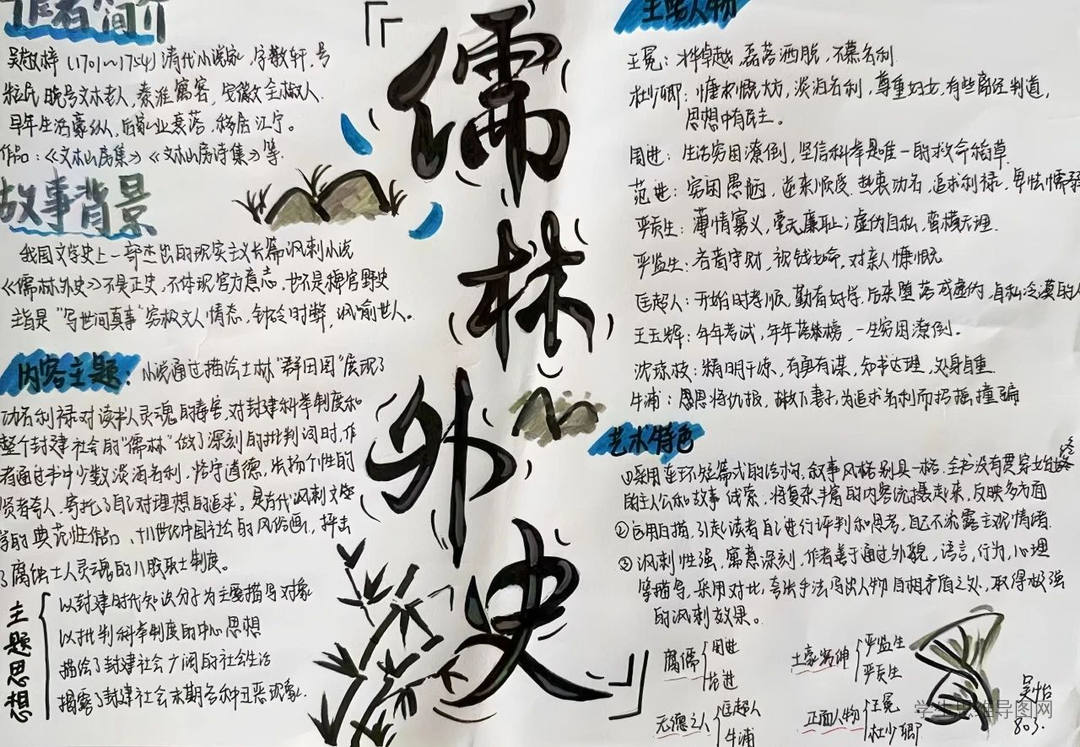 作者简介
吴敬梓（1701～1754）清代小说家，字敏轩，号
粒民，晚号文木老人，秦淮寓客，安徽全椒人.
早年生活豪纵，后家业衰落，移居江宁。
作品：《文木山房集》《文木山房诗集》等.
故事背景
我国文学史上一部杰出的现实主义长篇讽刺小说
《儒林外史》不是正史，不体现官方意志，也不是稗官野史
主旨是“写世间真事”穷极文人情态，针砭时弊，讽喻世人。
内容主题：小说通过描绘士林“群丑图”展现了
功名利禄对读书人灵魂的毒害，对封建科举制度和
整个封建社会的“儒林”做了深刻的批判同时，作
者通过书中少数淡泊名利，恪守道德，张扬个性的
贤者奇人，寄托了自己对理想的追求。是古代讽刺文学
的典范性作品，十八世纪中国社会的风俗画，抨击
了腐蚀士人灵魂的八股取士制度。
主题思想
以封建时代知识分子为主要描写对象
以批判科举制度的中心思想
描绘了封建社会广阔的社会生活
揭露了封建社会末期各种丑恶现象.
『儒林外史』
主要人物
王冕：才华卓越，磊落洒脱，不慕名利.
杜少卿：慷慨大方，淡泊名利，尊重妇女，有些离经判道，
思想中有民主。
周进：生活穷困潦倒，坚信科举是唯一的救命稻草.
范进：穷困愚陋，逆来顺受，热衷功名，追求利禄，卑怯懦弱
严贡生：薄情寡义，毫无廉耻；虚伪自私，蛮横无理.
严监生：吝啬守财，视钱如命，对亲人慷慨
匡超人：开始时孝顺，勤奋好学，后来堕落成虚伪，自私冷漠的人
王玉辉：年年考试，年年落榜，一生穷困潦倒。
沈琼枝：精明干练，有勇有谋，知书达理，处身自重
牛浦：恩将仇报，抛下妻子为追求名利而招摇撞骗
艺术特色
①采用连环短篇式的结构，叙事风格别具一格，全书没有贯穿始终
的主人公和故事线索，将复杂丰富的内容统摄起来，反映多方面
②运用白描，引起读者自己进行评判和思考，自己不流露主观情绪.
③讽刺性强，寓意深刻，作者善于通过外貌，语言，行为，心理
等描写，采用对比，夸张手法，写出人物自相矛盾之处，取得极强
的讽刺效果。
腐儒
周进
范进
土豪劣绅
严监生
严贡生
无德之人
匡超人
牛浦
正面人物
王冕
杜少卿
吴怡
803.